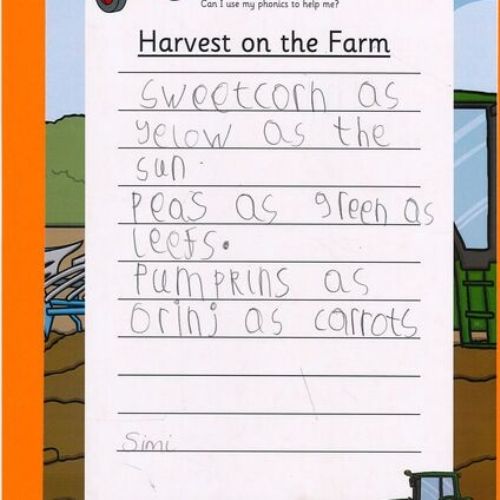 Can I use my phonics to help me?
Harvest on the Farm
sweetcorn as
yelow as the
sun.
peas as green as
leefs.
pumpkins as
orinj as carrots
Simi